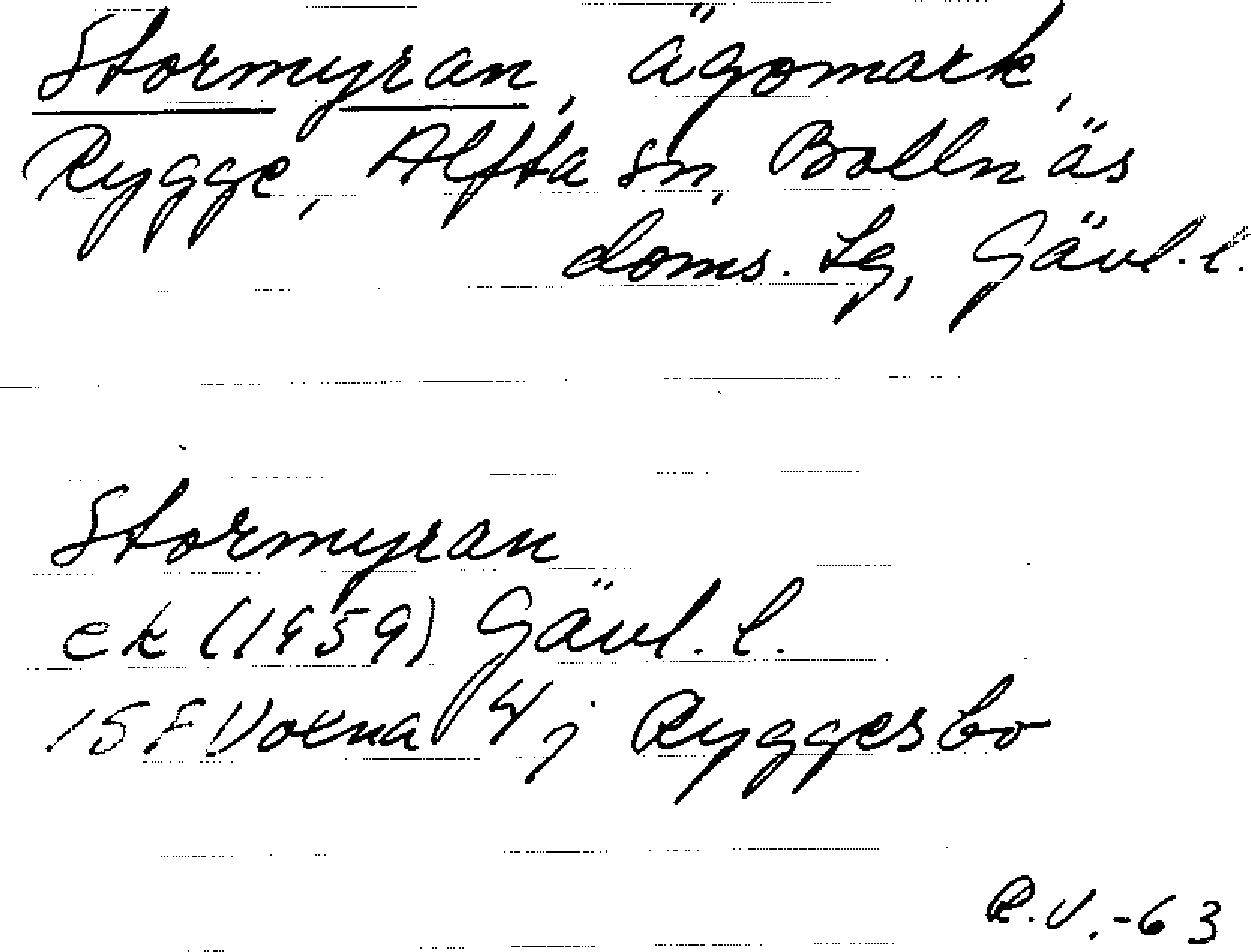 Stormyran, ägomark,
Rygge, Alfta sn, Bollnäs
doms. lg, Gävl.l.
Stormyran
ek (1959) Gävl.l.
15F Voxna 4 j Ryggesbo
R.V.-63